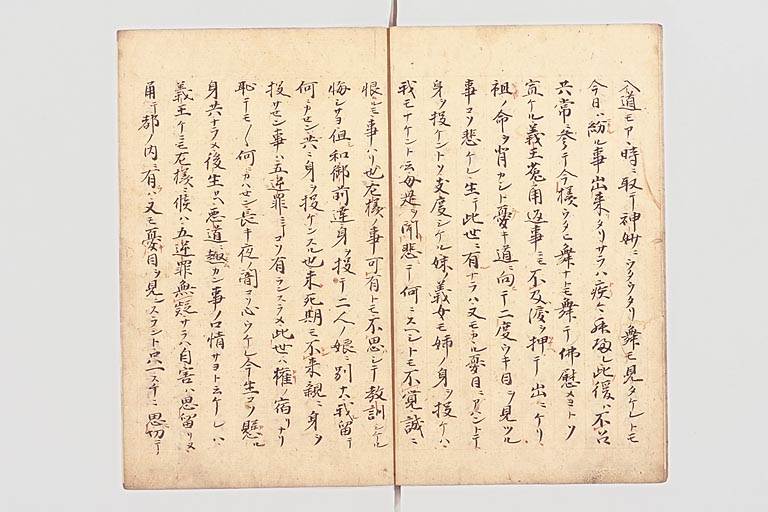 入道モアノ時ニ取テ神妙ニウタウタリ舞モ見タケレトモ
今日ハ紛ル事出来タリサラハ疾々祗候シ此後ハ不召
共常ニ参テ今様ウタヒ舞ナトモ舞テ佛慰メヨトソ
宣ケル義王菟角返事ニモ不及涙ヲ押テ出ニケリ
祖ノ命ヲ背カシト憂キ道ニ向テ二度ウキ目ヲ見ツル
事コソ悲ケレ生テ此世ニ有ナラハ又モカヽル憂目ニアハントテ
身ヲ投ケントソ支度シケル妹ノ義女モ姉ノ身ヲ投ケハ
我モナケント云母是ヲ聞悲テ何ニスヘシトモ不覚誠ニ
恨ルモ事ハリ也左様ノ事可有トモ不思シテ教訓シケル
悔シサヨ但和御前達身ヲ投テ二人ノ娘ニ別レ我留テ
何ニカセン共ニ身ヲ投ケンスル也未死期モ不来親ニ身ヲ
投サセン事ハ五逆罪ニテコソ有ランスラメ此世ハ權ノ宿リナリ
恥テモ〱何カハセン長キ夜ノ闇コソ心ウケレ今生コソ懸ル
身共ナラメ後生又悪道ニ趣カン事ノ口惜サヨト云ケレハ
義王ケニモ左様ニ候ハヽ五逆罪無疑サラハ自害ハ思留リヌ
角テ都ノ内ニ有ハ又モ憂目ヲ見ンスラント只一スチニ思切テ